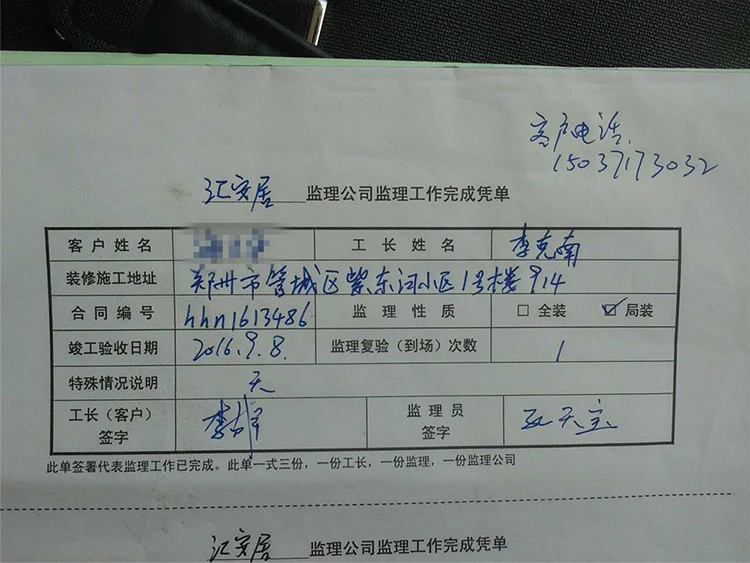 客户电话
15037173032
汇安居 监理公司监理工作完成凭单
客户姓名 工长姓名 李克南
装修施工地址 郑州市管城区紫东河小区1号楼914
合同编号 hhn1613486 监理性质 □ 全装 ☑ 局装
竣工验收日期 2016.9.8. 监理复验（到场）次数 1
特殊情况说明 无
工长（客户） 监理员
签字 签字 天宝
此单签署代表监理工作已完成。此单一式三份，一份工长，一份监理，一份监理公司
汇安居 监理公司监理工作完成凭单